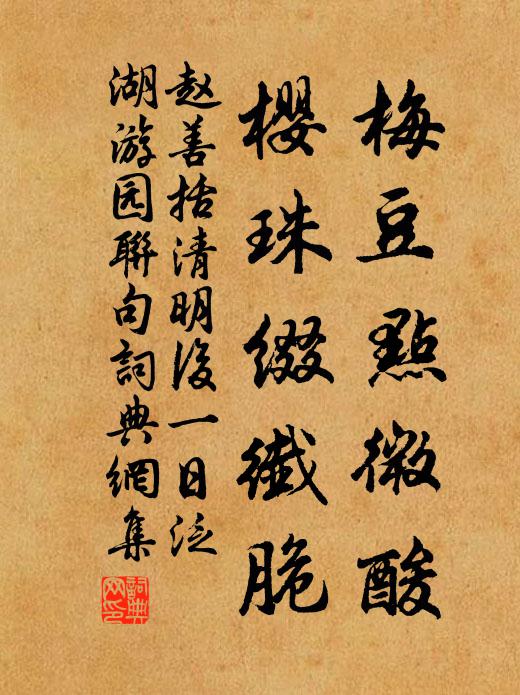 梅豆點微酸
櫻珠綴纖脆
赵善括清明後一日泛
湖游园聯句詞典網集
詞典网印